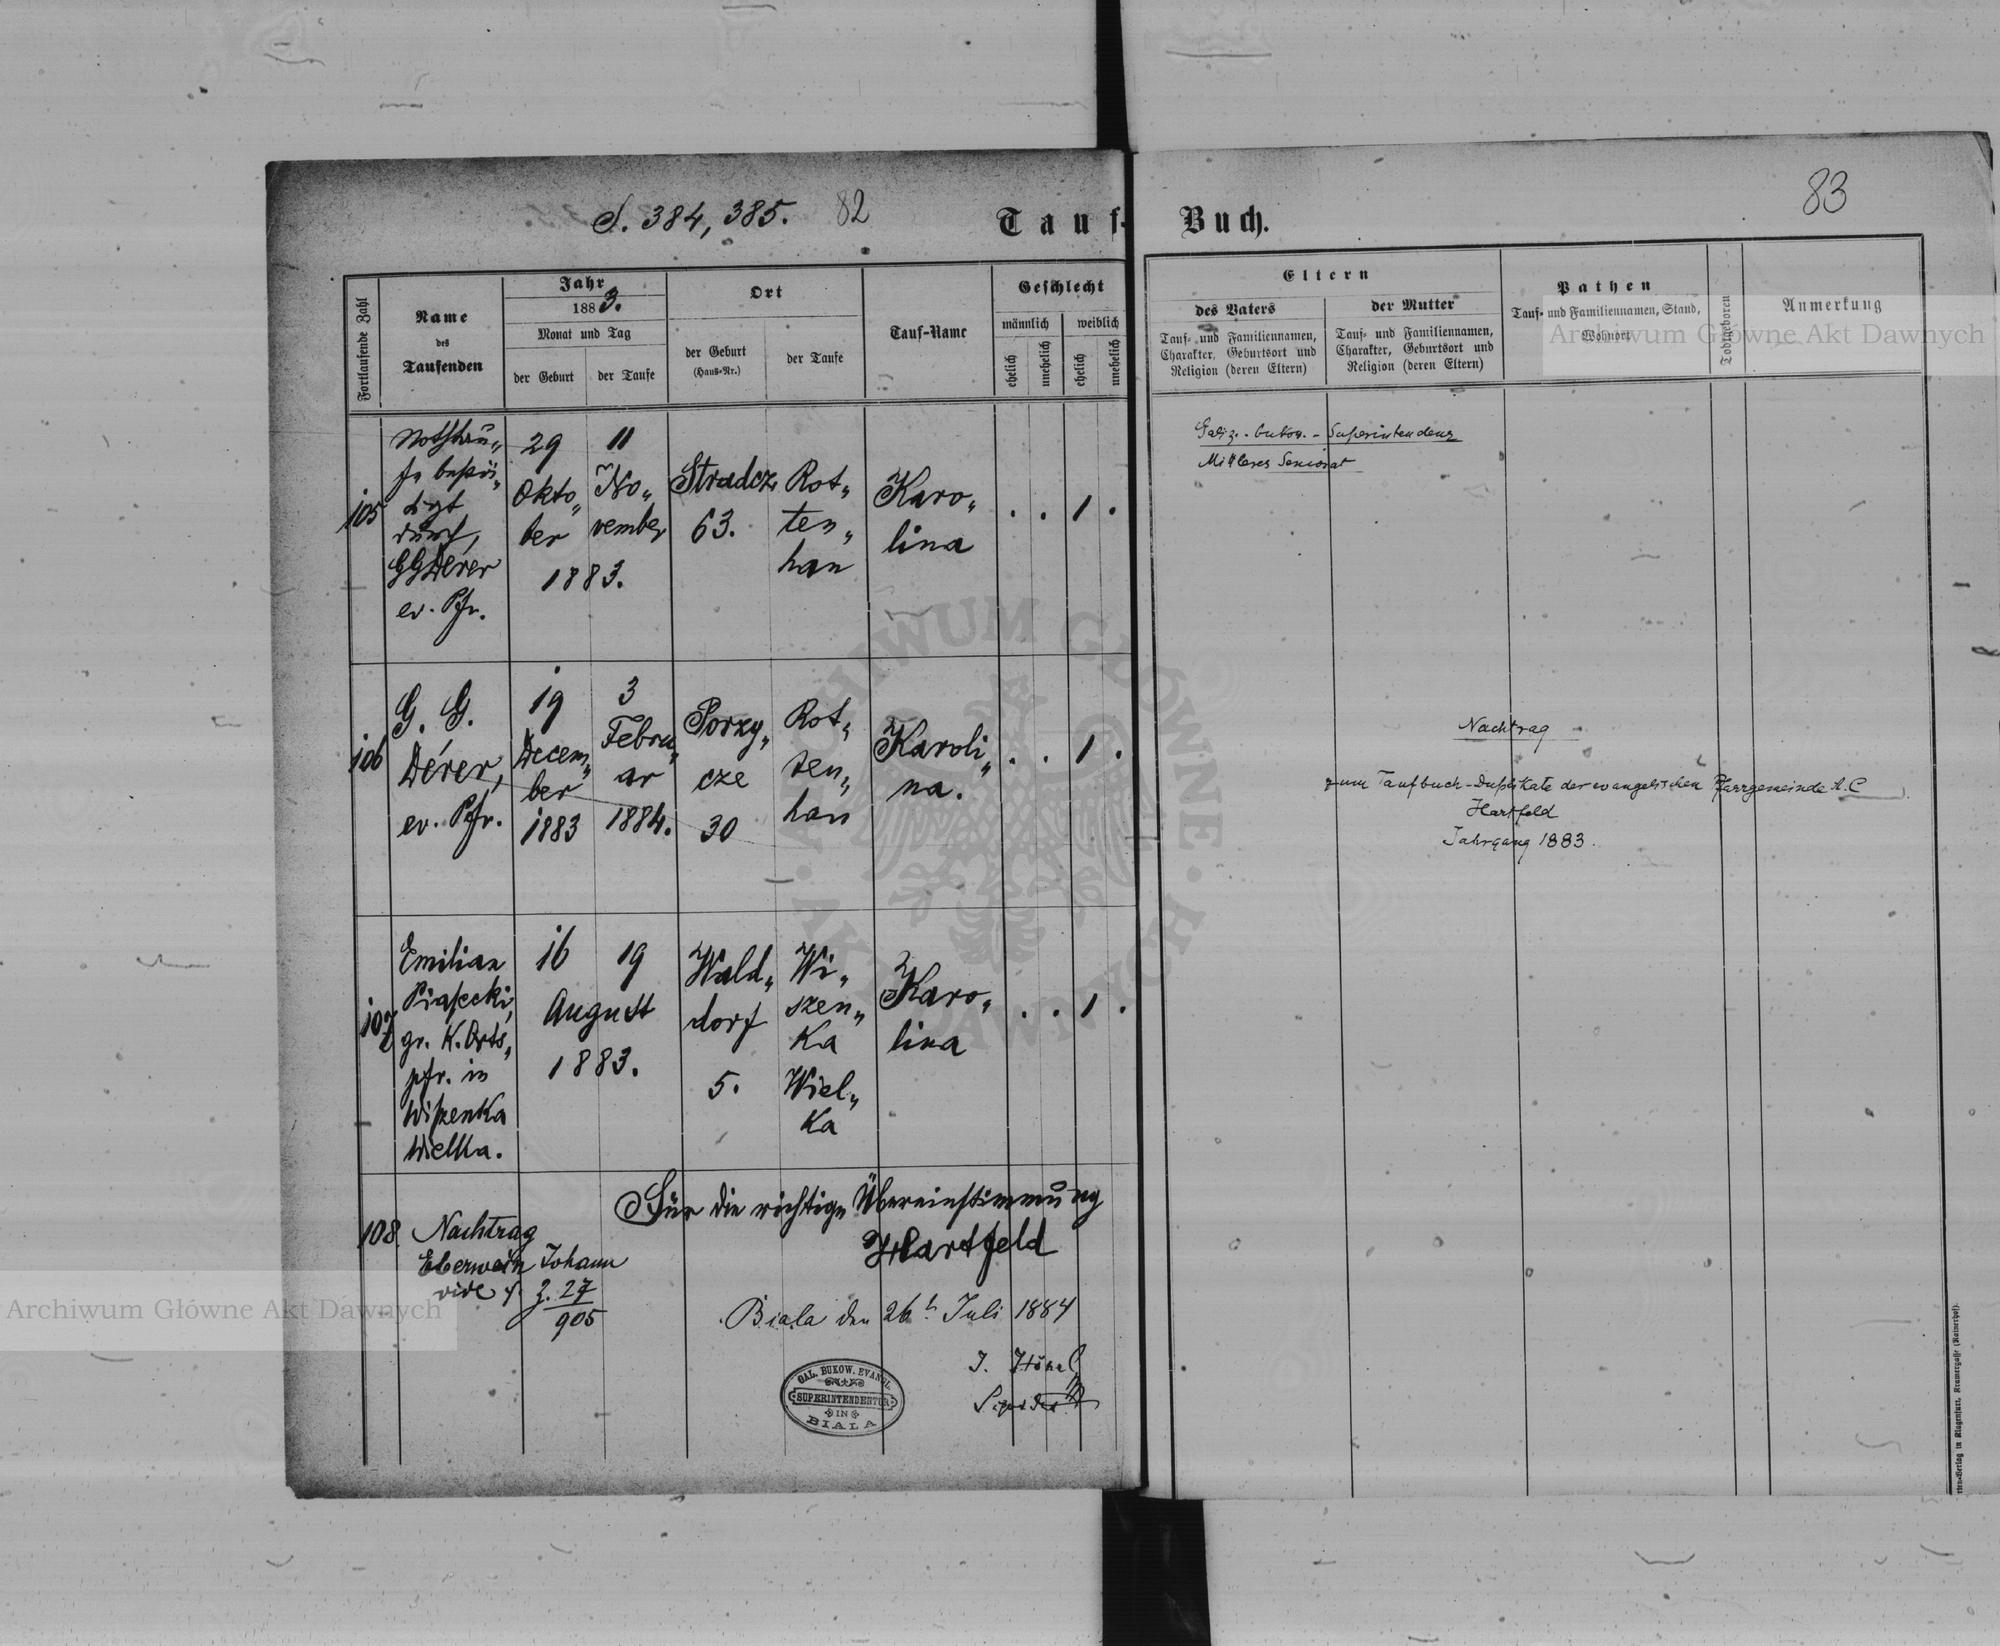 S. 384, 385. 82
Tauf-
Fortlaufende Zahl
Name
des
Taufenden
Jahr
1883.
Monat und Tag
der Geburt
der Taufe
Ort
der Geburt
(Haus-Nr.)
der Taufe
Tauf-Name
Geschlecht
männlich
weiblich
ehelich
unehelich
ehelich
unehelich
105
Nothtau„
fe bestä„
tigt
durch
GGDérer
ev. Pfr.
29
Okto„
ber
11
No„
vember
1883.
Stradcz
63.
Rot„
ten„
han
Karo„
lina
. . 1 .
106
G. G.
Dérer,
ev. Pfr.
19
Decem„
ber
1883
3
Febru„
ar
1884.
Porzy„
cze
30
Rot„
ten„
han
Karoli„
na.
. . 1 .
107
Emilian
Piasecki,
gr. K. Orts„
pfr. in
Wiszenka
Wielka.
16 19
August
1883.
Wald„
dorf
5.
Wi„
szen„
Ka
Wiel„
Ka
Karo„
lina
. . 1 .
Für die richtige Übereinstimmung
Hartfeld
108. Nachtrag
Eberwein Johann
vide
Z. 27
905
Biala den 26t. Juli 1884
J. Hönel
GAL. BUKOW. EVANGL.
SUPERINTENDENTUR
IN
BIALA
83
Buch.
Eltern
des Vaters
Tauf- und Familiennamen,
Charakter, Geburtsort und
Religion (deren Eltern)
der Mutter
Tauf- und Familiennamen,
Charakter, Geburtsort und
Religion (deren Eltern)
Pathen
Tauf- und Familiennamen, Stand,
Wohnort
Todtgeboren
Anmerkung
Galiz.-bukow.-Superintendenz
Mittleres Seniorat
Nachtrag
zum Taufbuch-Duplikate der evangelischen Pfarrgemeinde A. C
Hartfeld
Jahrgang 1883.
Verlag in Klagenfurt, Kramergasse (Rainerhof).
Archiwum Główne Akt Dawnych
Archiwum Główne Akt Dawnych
ARCHIWUM GŁÓWNE AKT DAWNYCH